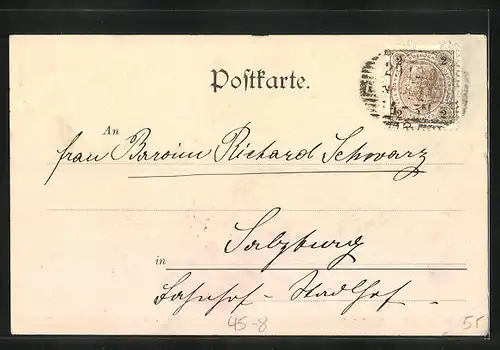 Postkarte.
2 2
2 2
An
Frau Baronin Richard Schwarz
Salzburg
in
Bahnhof - Stadlhof.
45-8
55